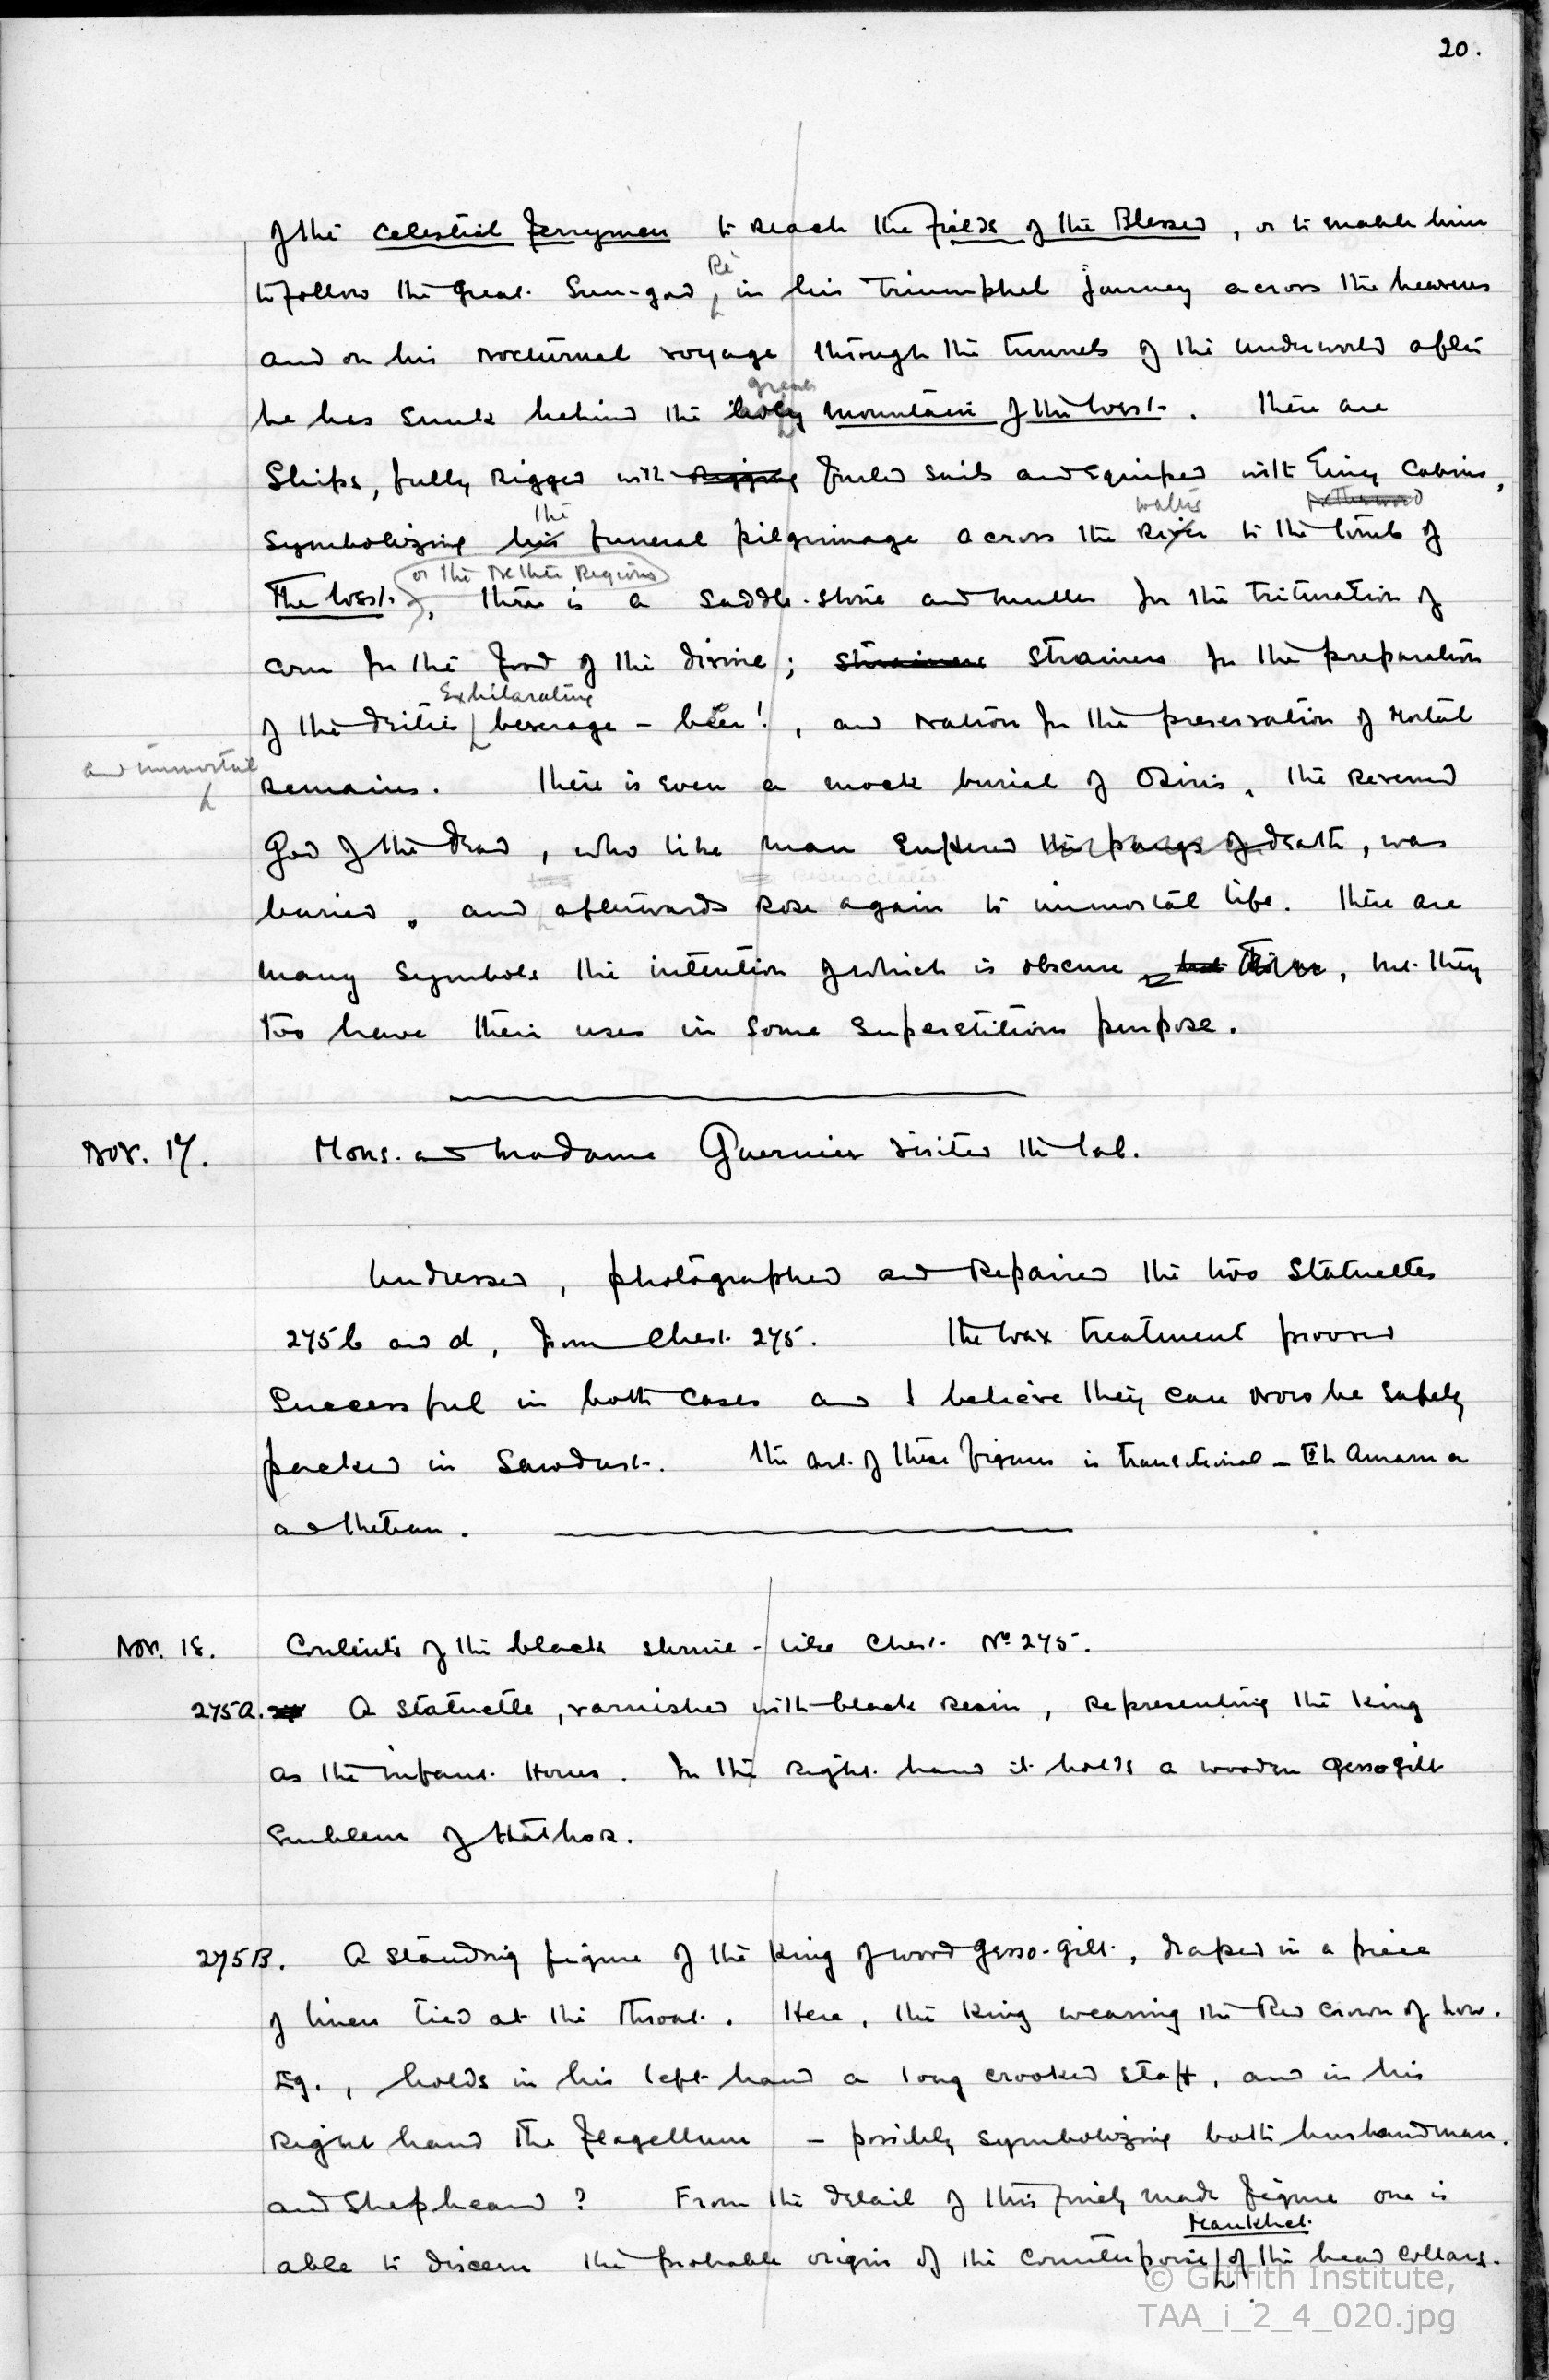 20.
of the Celestial Ferryman to reach the Fields of the Blessed, or to enable him
Rē
to follow the great Sun-god, in his triumphal journey across the heavens
and on his nocturnal voyage through the tunnels of the underworld after
great
he has sunk behind the holy mountain of the West. There are
Ships, fully rigged with rigging furled sails and equiped with tiny cabins,
the water Netherword
symbolizing his funeral pilgrimage across the River to the tomb of
or the Nether Regions
the West. There is a saddle-stone and muller for the trituration of
corn for the food of the divine; strainers strainers for the preparation
Exhilarating
of the deities beverage - beer!, and natron for the preservation of mortal
and immortal
remains. There is even a mock burial of Osiris, the revered
God of the dead, who like man suffered the pangs of death, was
resuscitated
buried, and afterwards rose again to immortal life. There are
many symbols the intention of which is obscure but, but they
too have their uses in some superstitious purpose.
Nov. 17. Mons. and Madame Guernier visited the lab.
Undressed, photographed and repaired the two statuettes
275b and d, from Chest 275. The wax treatment prooved
successful in both cases and I believe they can now be safely
packed in sawdust. The art of these figures is transitional - El Amarna
and Theban.
Nov. 18. Contents of the black shrine-like Chest No 275.
275A. A statuette, varnished with black resin, representing the King
as the infant Horus. In the right hand it holds a wooden gesso gilt
emblem of Hathor.
275B. A standing figure of the King of wood gesso-gilt, draped in a piece
of linen tied at the throat. Here, the King wearing the Red Crown of Low.
Eg., holds in his left hand a long crooked staff, and in his
right hand the flagellum - possibly symbolizing both husbandman
and Shepheard? From the detail of this finely made figure one is
Mankhet
able to discern the probable origin of the counterpoise of the bead collars.
© Griffith Institute,
TAA_i_2_4_020.jpg